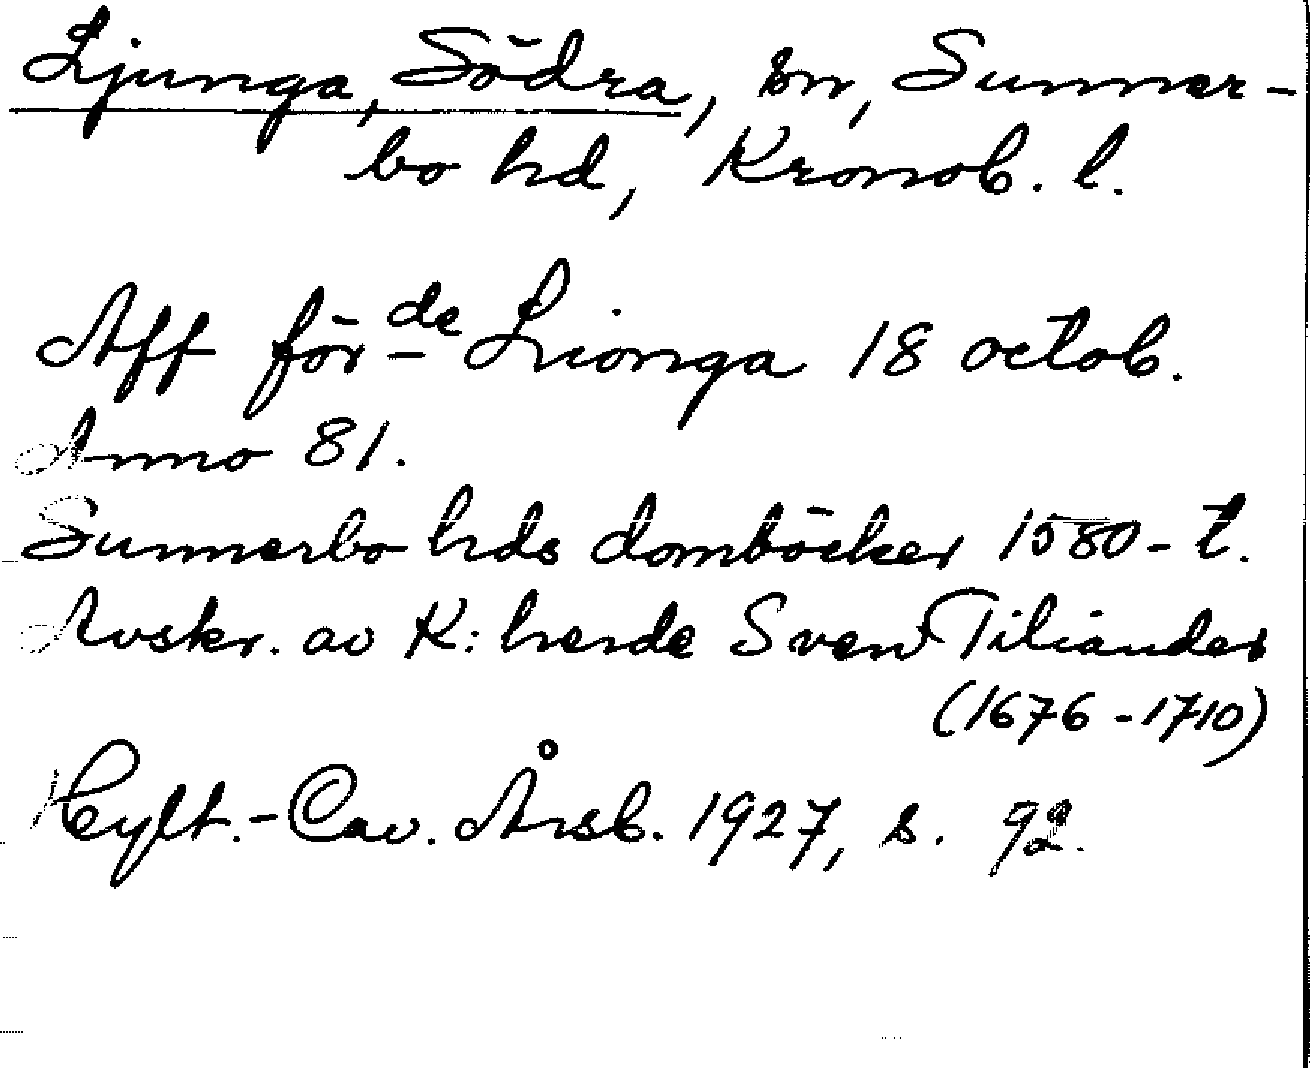 Ljunga, Södra, sn, Sunner-
bo hd, Kronob. l.
Aff för de Lionga 18 octob.
Anno 81.
Sunnerbo hds domböcker 1580-t.
Avskr. av K: herde Sven Tiliander
(1676-1710)
Hylt.-Cav. Årsb. 1927, s. 92.